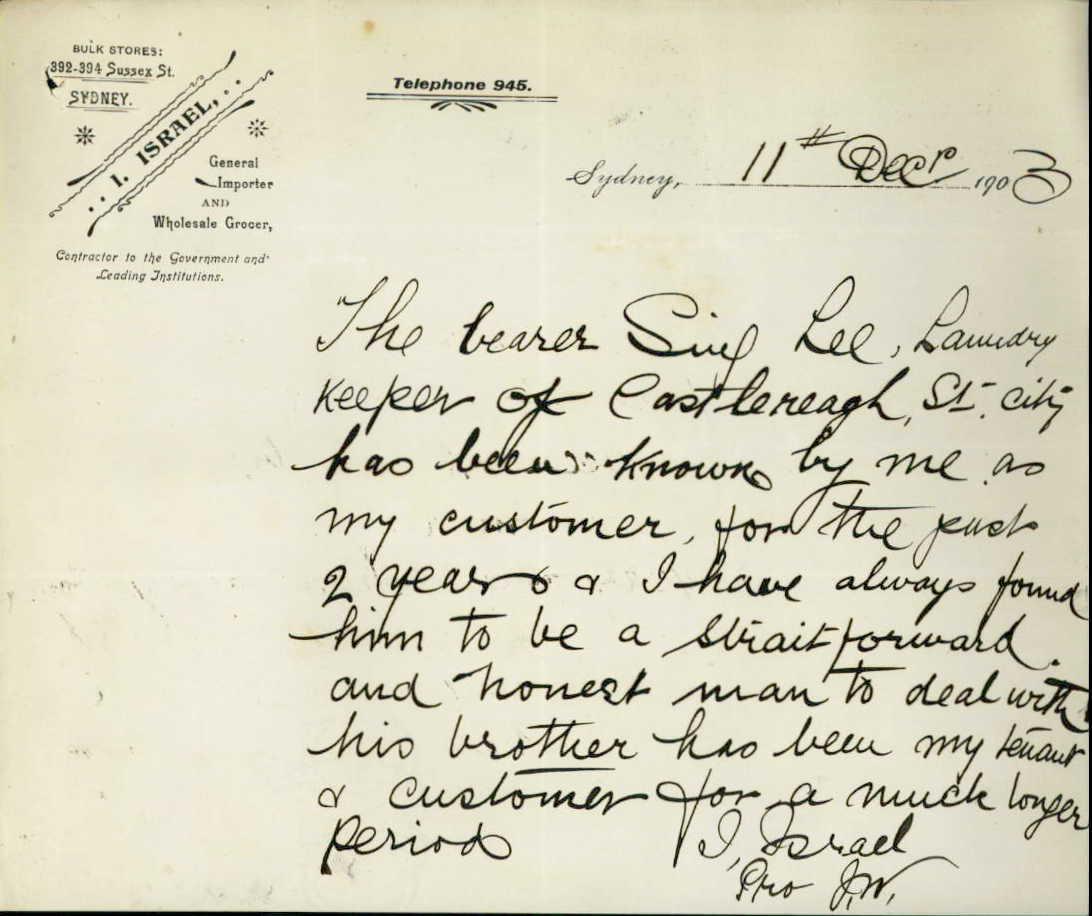 BULK STORES:
392-394 Sussex St.
SYDNEY.
. . I. ISRAEL, . .
General
Importer
AND
Wholesale Grocer,
Contractor to the Government and
Leading Institutions.
Telephone 945.
Sydney, 11th Decr 1903
The bearer Sing Lee, Laundry
keeper of Castlereagh, St. city
has been known by me as
my customer, for the past
2 years & I have always found
him to be a straitforward.
and honest man to deal with
his brother has been my tenant
& customer for a much longer
period
I, Israel
Pro J.W.